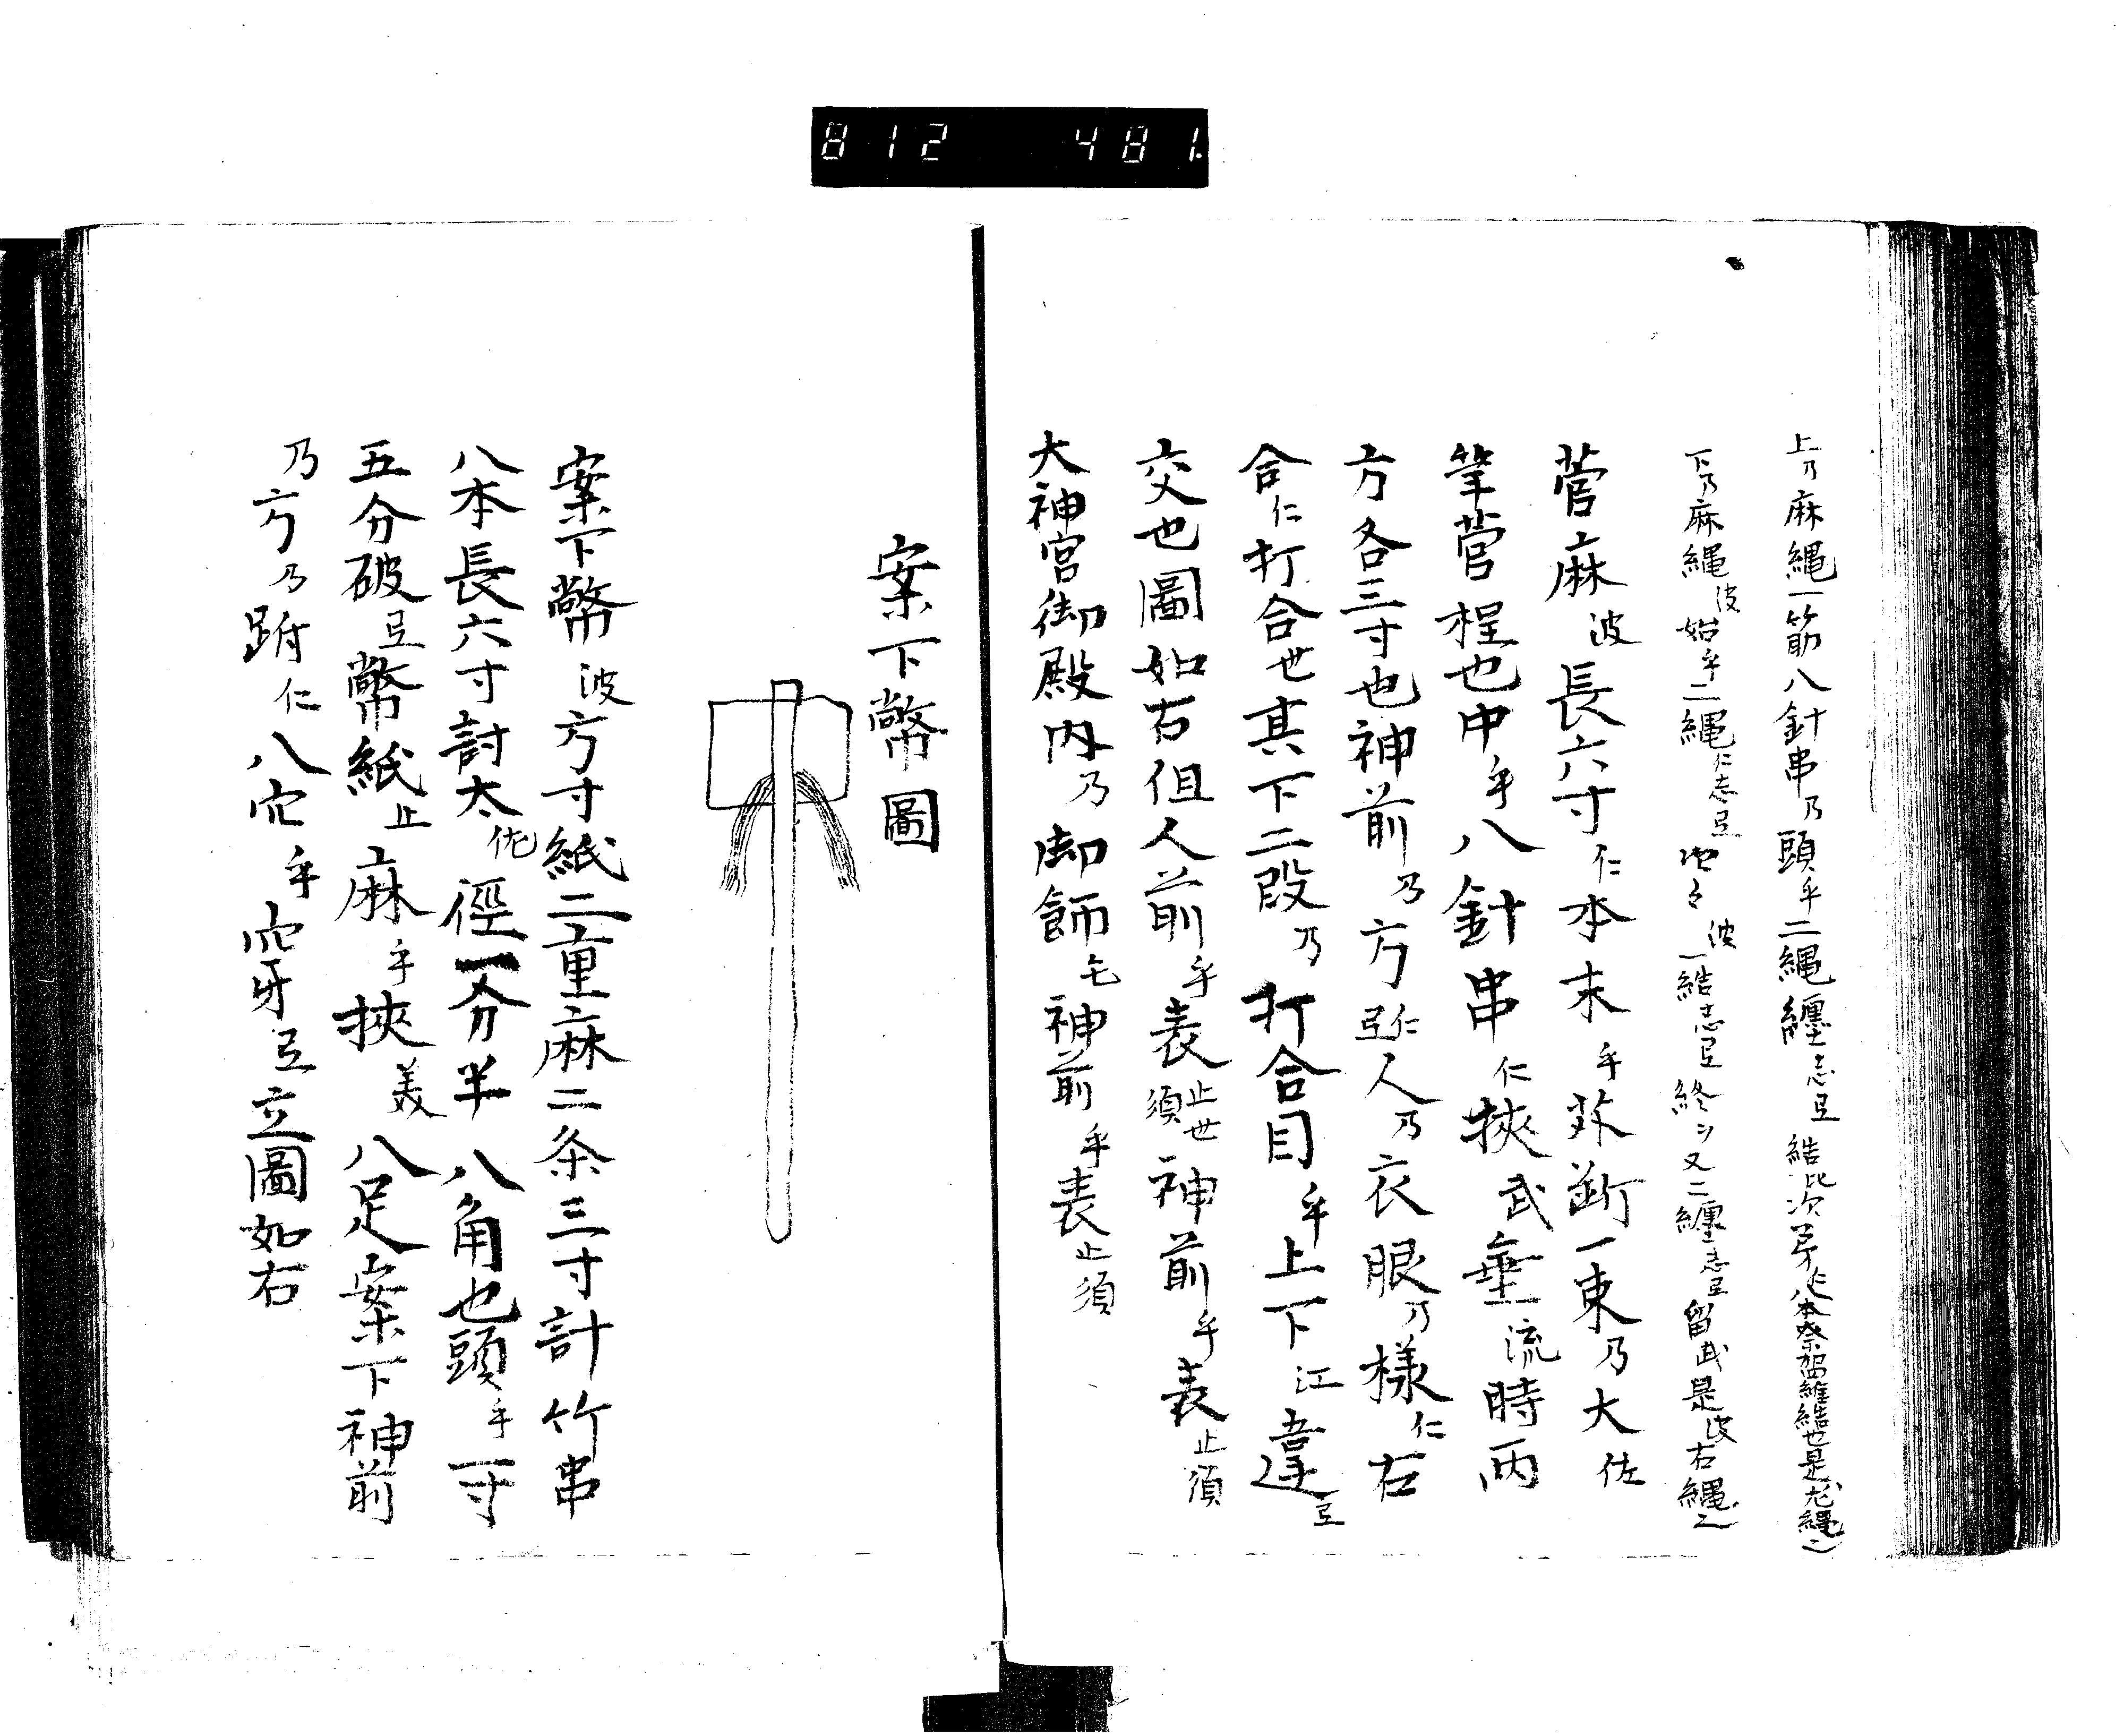 812 481
上乃麻縄一筋八針串乃頭乎二縄纏志弖結比次第仁八本祭留維結也是尨縄二
下乃麻縄波始乎二縄仁志弖 波一結志弖終又二纏志弖留武是波右縄二
菅麻波長六寸仁本末乎苅断一束乃大佐
筆菅程也中乎八針串仁挟武垂流時両
方各三寸也神前乃方弖仁人乃衣眼乃様仁右
合仁打合世其下二段乃打合目乎上下江違弖
交也圖如右但人前乎表止世須神前乎表止須
大神宮御殿内乃御餝毛神前乎表止須
案下幣圖
案下幣波方寸紙二重麻二条三寸計竹串
八本長六寸討太佐徑一分半八角也頭乎一寸
五分破弖幣紙止麻乎挟美八足案下神前
乃方乃跗仁八穴乎穴牙弖立圖如右